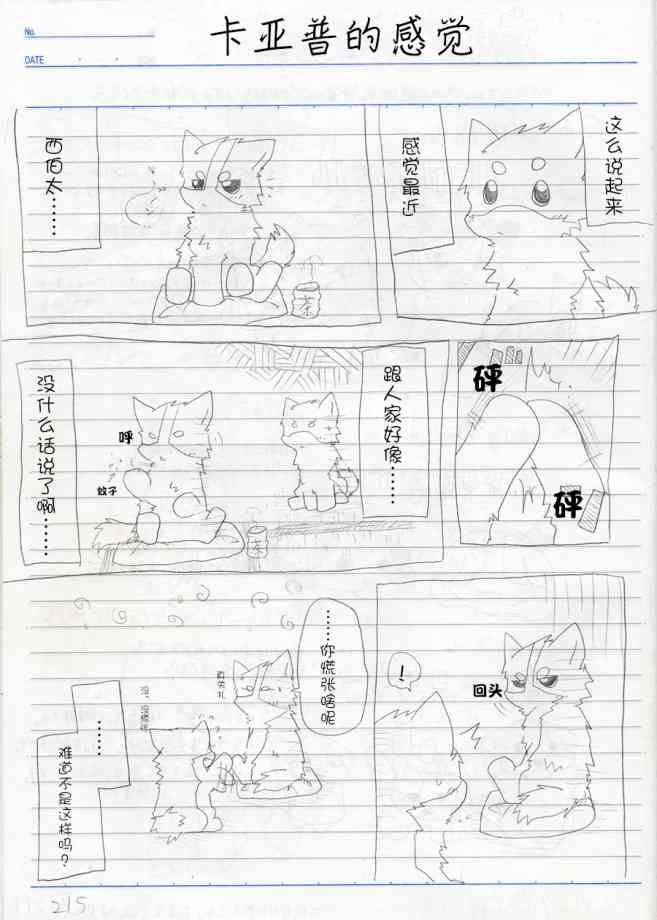 No.
DATE
卡亚普的感觉
这么说起来
感觉最近
西伯太………
茶
砰
砰
跟人家好像………
呼
蚊子
茶
没什么话说了啊………
回头
！
………你慌张啥呢
真失礼
没、没慌张
……
难道不是这样吗？
215